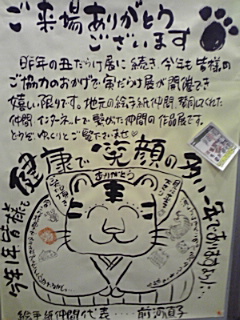 ご来場ありがとう
ございます
昨年の丑だらけ展に続き、今年も皆様の
ご協力のおかげで寅だらけ展が開催でき
嬉しい限りです。地元の絵手紙仲間、賛同してくれた
仲間、インターネットで繋がった仲間の作品展です。
どうぞ、ゆっくりとご覧下さいませ
健康で笑顔の
ありがとう
今年1年皆様
絵手紙仲間代表